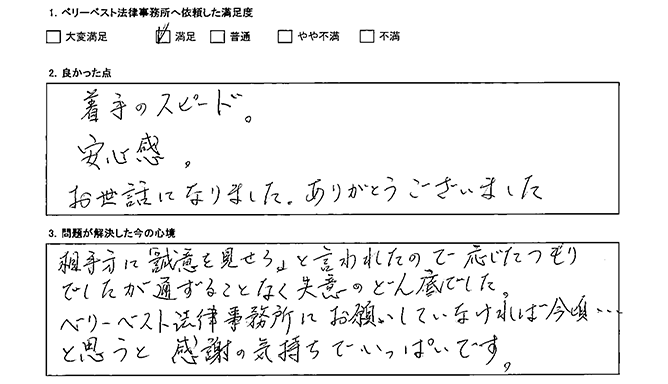 1. ベリーベスト法律事務所へ依頼した満足度
□ 大変満足 ☑ 満足 □ 普通 □ やや不満 □ 不満
2. 良かった点
着手のスピード。
安心感。
お世話になりました。ありがとうございました
3. 問題が解決した今の心境
相手方に「誠意を見せろ」と言われたので応じたつもり
でしたが通ずることなく失意のどん底でした。
ベリーベスト法律事務所にお願いしていなければ今頃…
と思うと感謝の気持ちでいっぱいです。